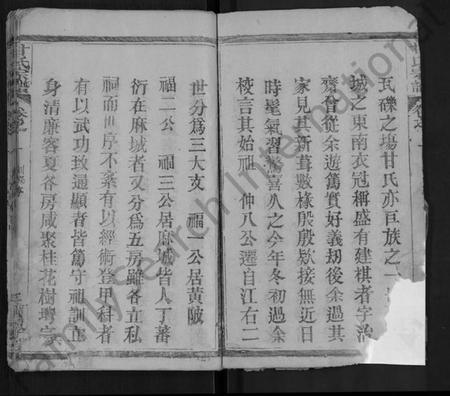 瓦礫之塲甘氏亦巨族之一
城之東南衣冠稱盛有建棋者字治
齋曾從余遊篤實好義刼後余過其
家見其新葺數椽殷殷欵接無近日
時髦氣習驚喜久之今年冬初過余
校言其始祖 仲八公遷自江右二
世分爲三大支 福一公居黃陂
福二公 福三公居麻城皆人丁蕃
衍在麻城者又分爲五房雖各立私
祠而世序不紊有以經術登甲科者
有以武功致通顯者皆篤守祖訓
身清廉客夏各房咸聚桂花樹
甘氏宗譜
卷之一
FamilySearch International